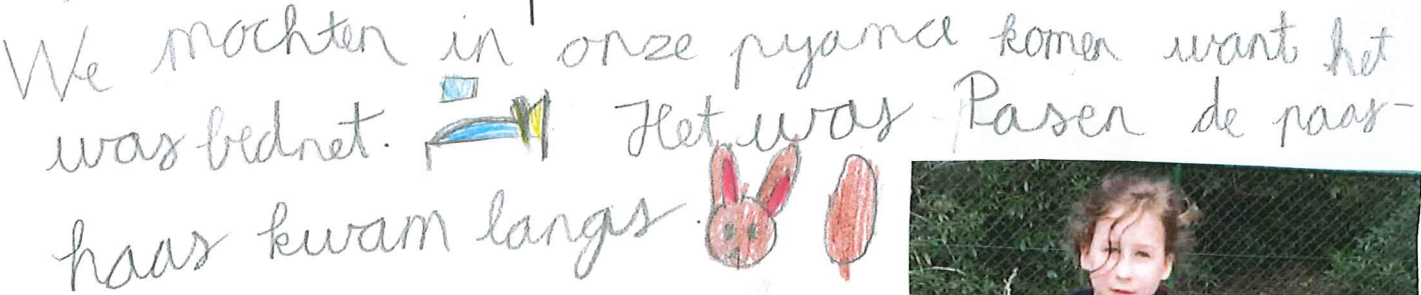 We mochten in onze pyama komen want het
was bednet. Het was Pasen de paas-
haas kwam langs.